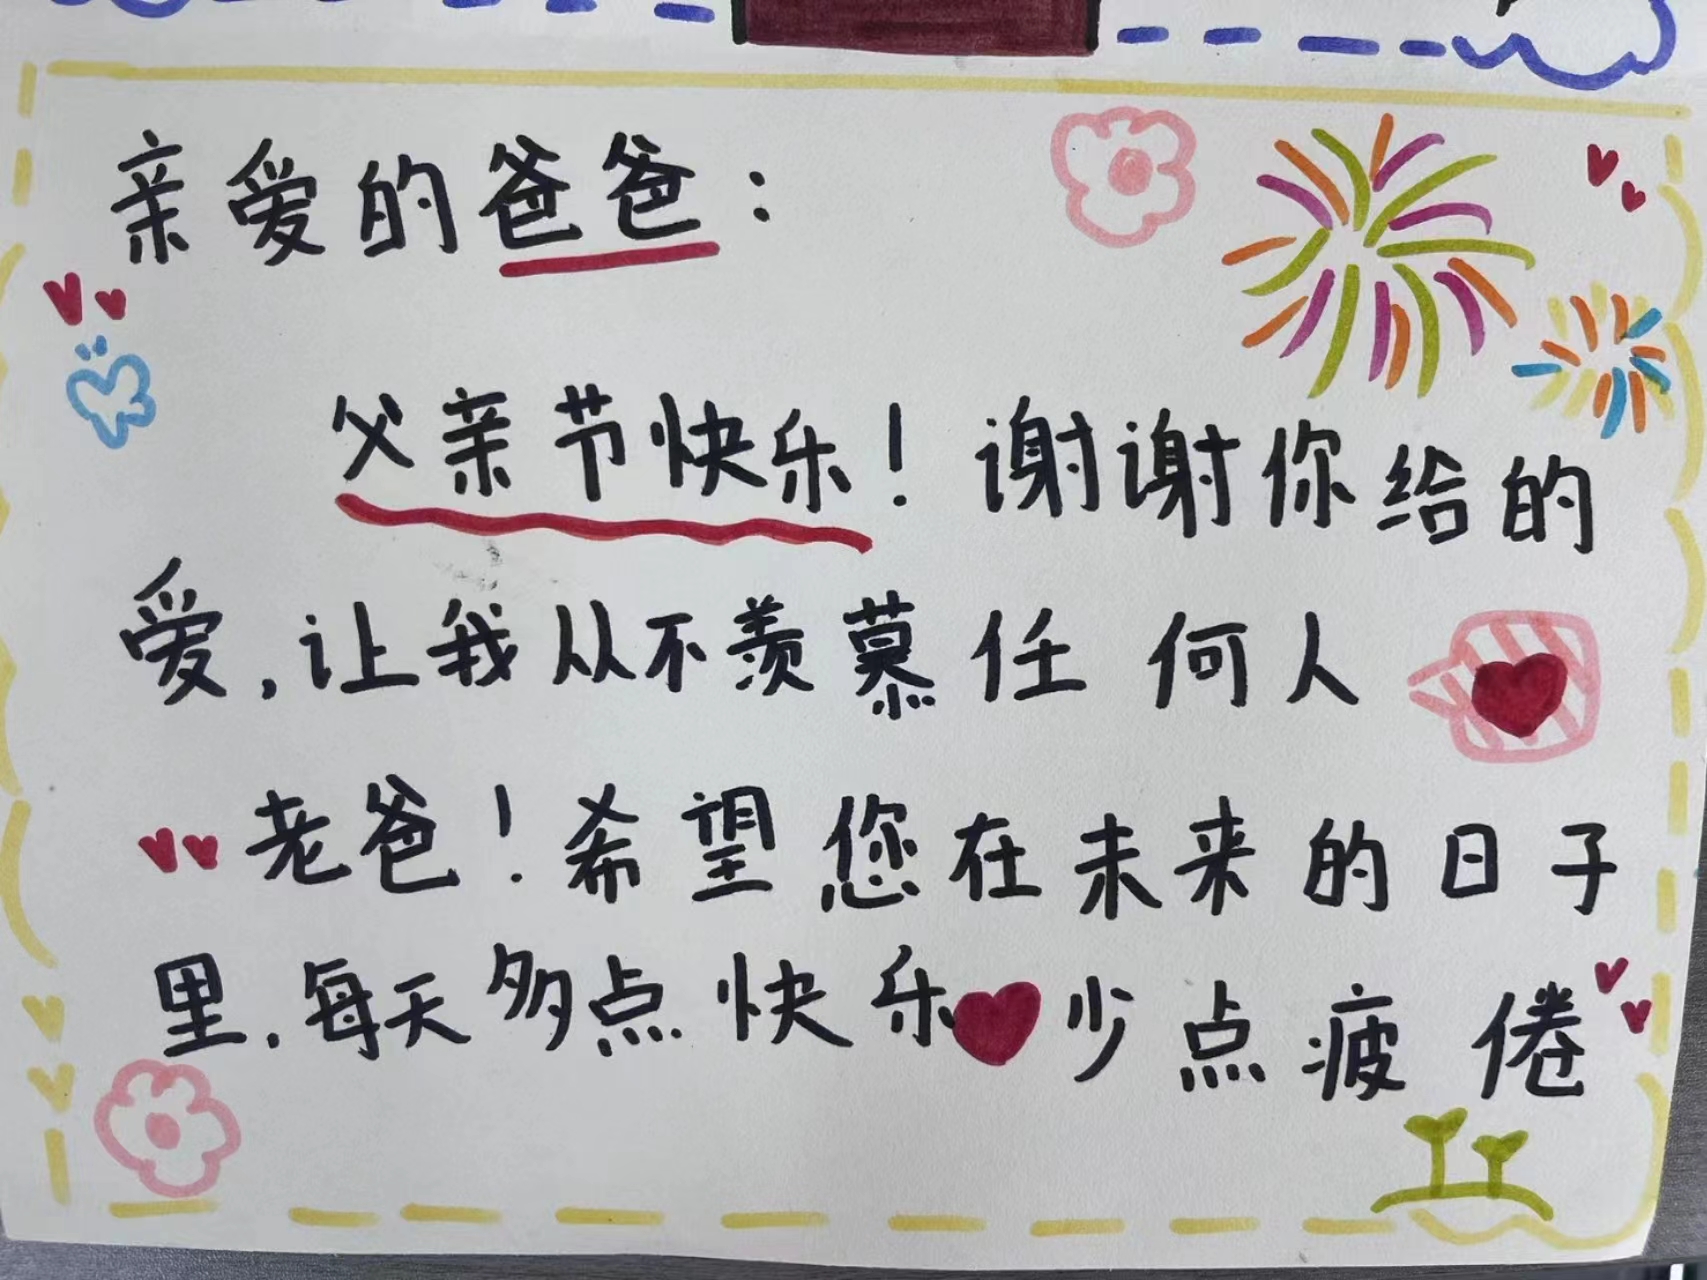 亲爱的爸爸：
父亲节快乐！谢谢你给的
爱，让我从不羡慕任何人
老爸！希望您在未来的日子
里，每天多点快乐少点疲倦